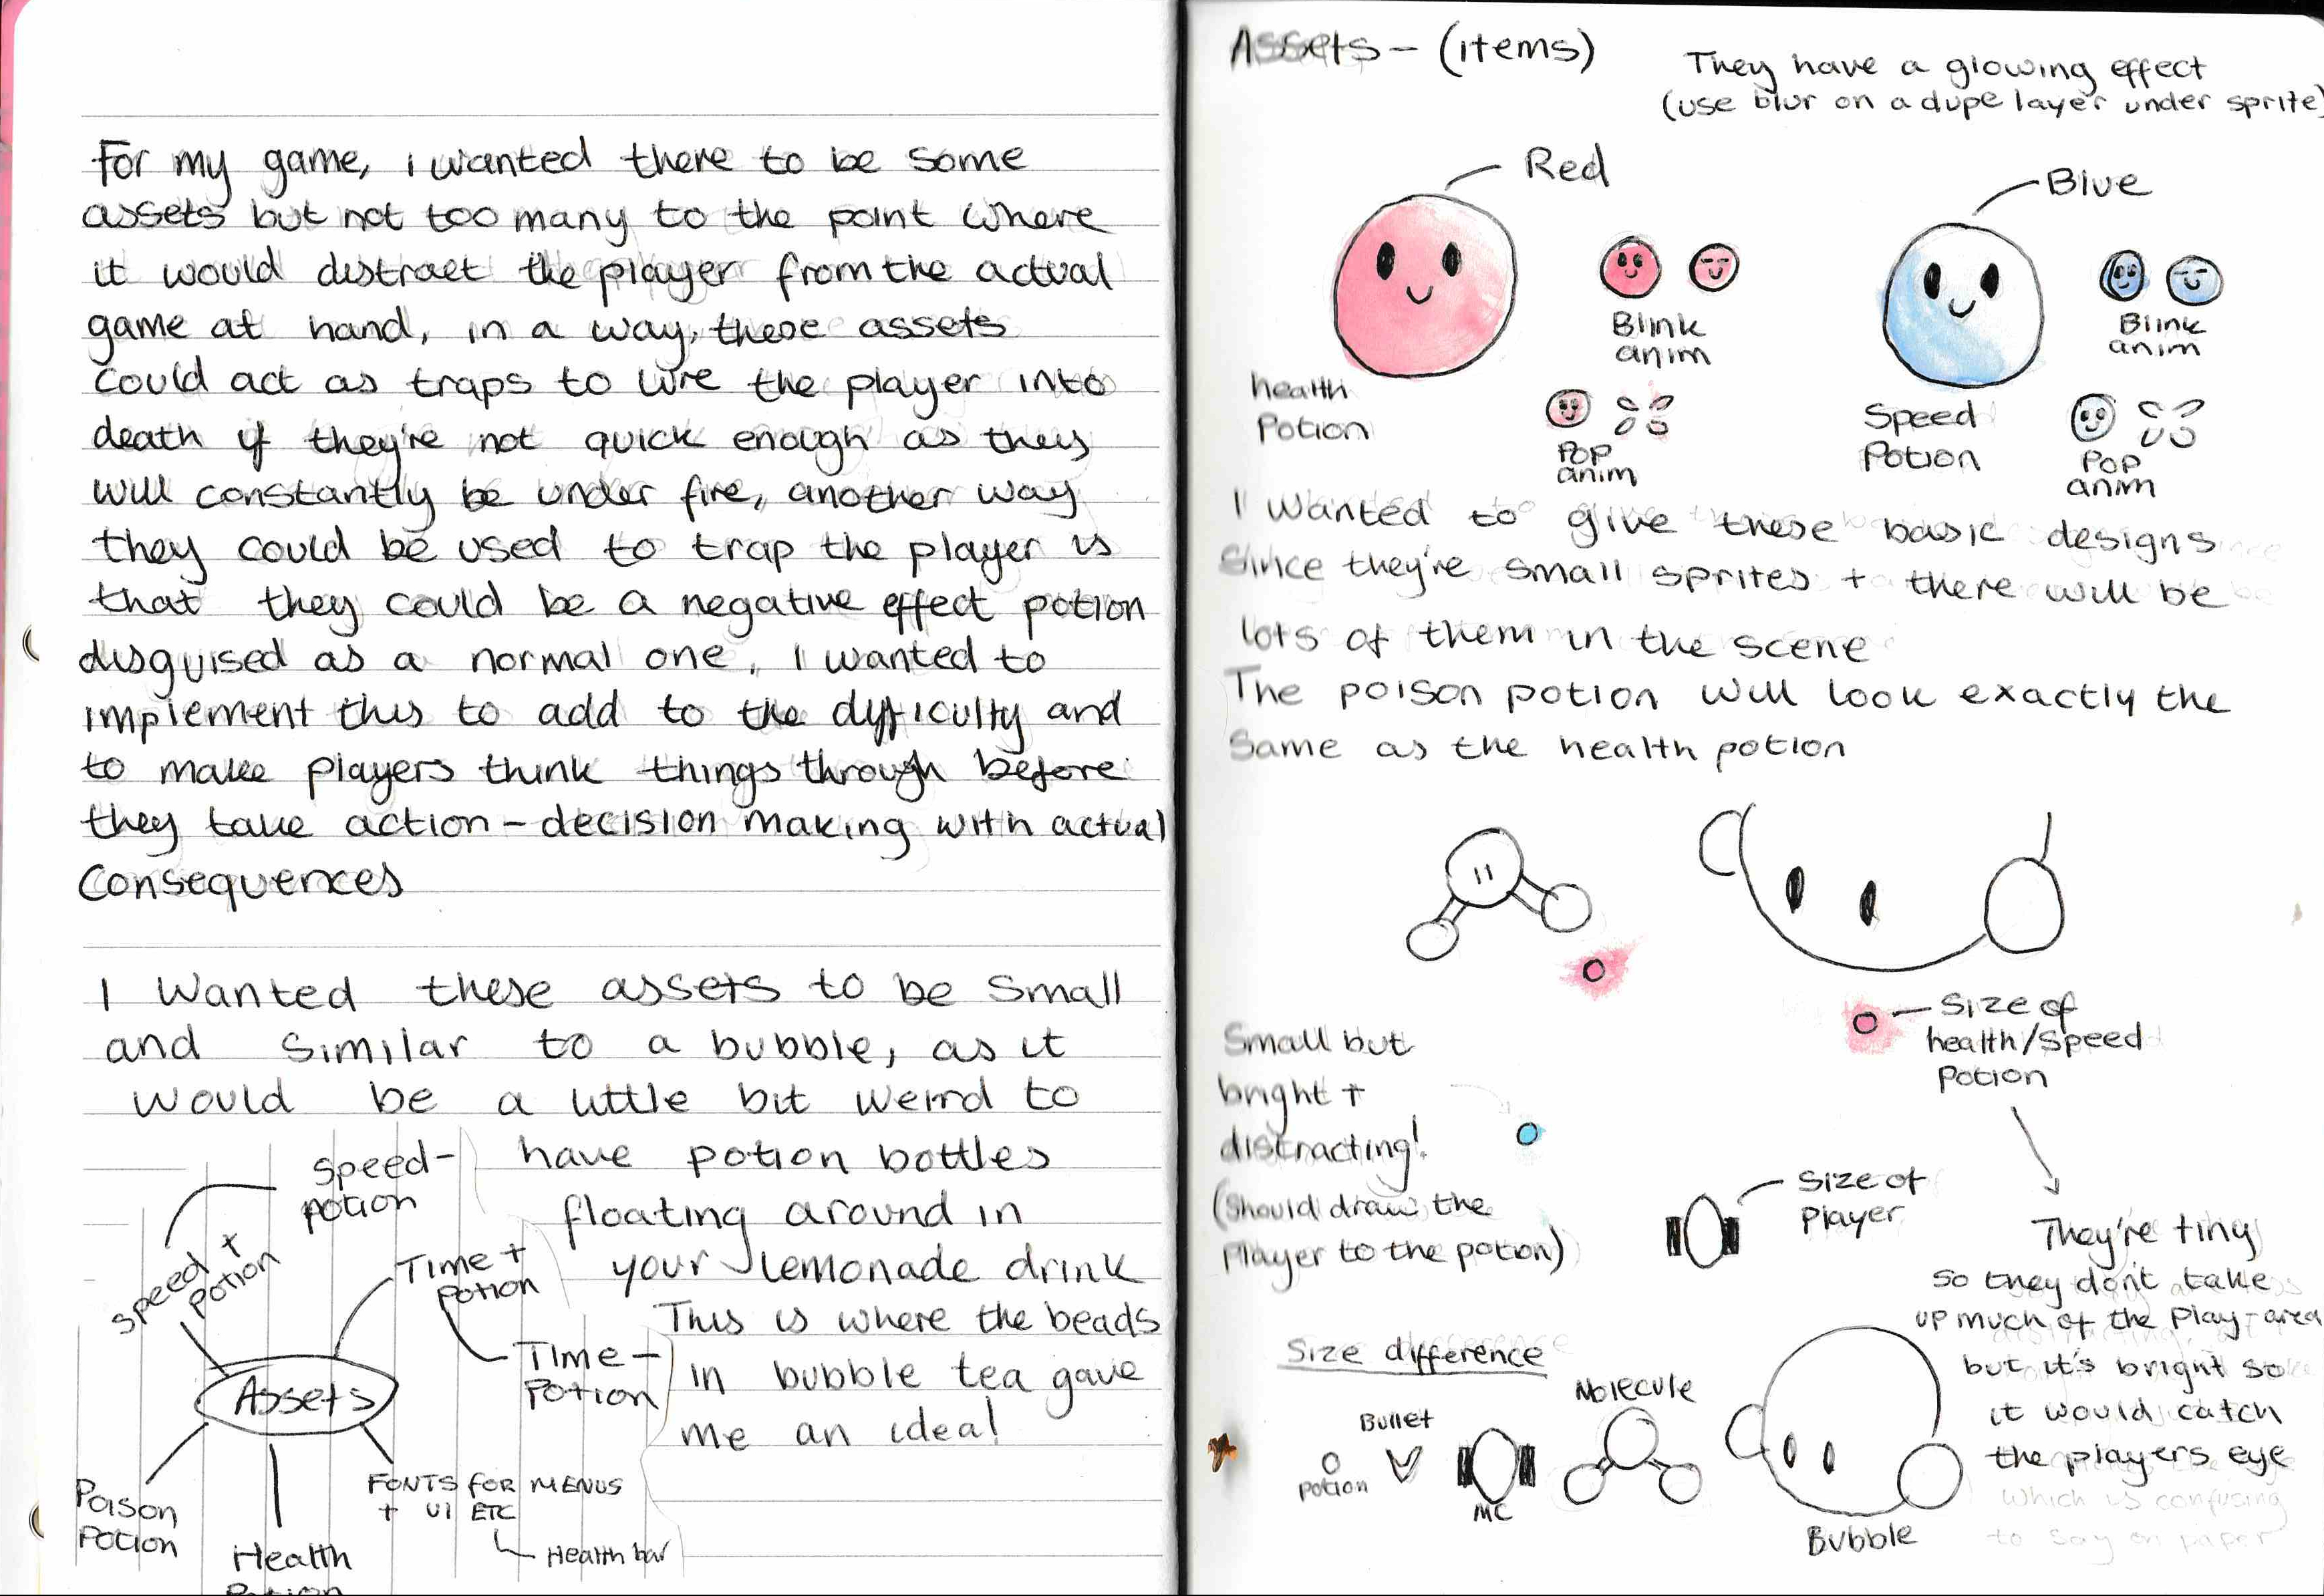 For my game, i wanted there to be some
assets but not too many to the point where
it would distract the player from the actual
game at hand, in a way, these assets
could act as traps to lure the player into
death if they're not quick enough as they
will constantly be under fire, another way
they could be used to trap the player is
that they could be a negative effect potion
disguised as a normal one. I wanted to
implement this to add to the difficulty and
to make players think things through before
they take action - decision making with actual
consequences
I wanted these assets to be small
and similar to a bubble, as it
would be a little bit weird to
have potion bottles
floating around in
your lemonade drink
This is where the beads
in bubble tea gave
me an idea!
Speed -
potion
Speed +
potion
Time +
potion
Time -
Potion
Assets
Poison
Potion
Health
Potion
FONTS FOR MENUS
+ UI ETC
Health bar
Assets - (items)
They have a glowing effect
(use blur on a dupe layer under sprite)
Red
Blue
Blink
anim
Blink
anim
health
Potion
Pop
anim
Speed
Potion
Pop
anim
I wanted to give these basic designs
since they're small sprites + there will be
lots of them in the scene
The poison potion will look exactly the
same as the health potion
Size of
health/speed
Potion
Small but
bright +
distracting!
(should draw the
player to the potion)
Size of
Player
They're tiny
so they don't take
up much of the play-area
but it's bright so
it would catch
the players eye
which is confusing
to say on paper
Size difference
potion
Bullet
MC
Molecule
Bubble